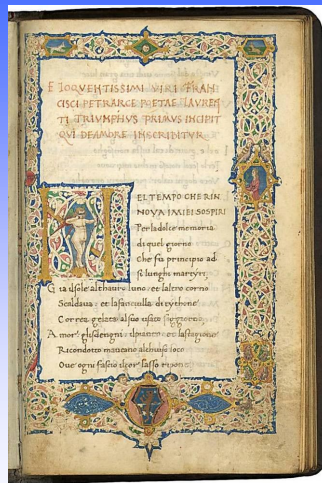 ELOQVENTISSIMI VIRI FRAN
CISCI PETRARCE POETAE LAVREN
TI TRIVMPHVS PRIMVS INCIPIT
QVI DEAMORE INSCRIBITVR
EL TEMPO CHE RIN
NOVA IMIEI SOSPIRI
Per la dolce memoria
di quel giorno
Che fu principio ad
si lunghi martyri
Gia il sole al thauro luno et laltro corno
Scaldaua et la fanciulla di tythone
Correa gelata al suo usato soggiorno
Amor gli sdegni il pianto et la stagione
Ricondotto maueano al chiuso loco
Oue ogni fascio il cor lasso ripone